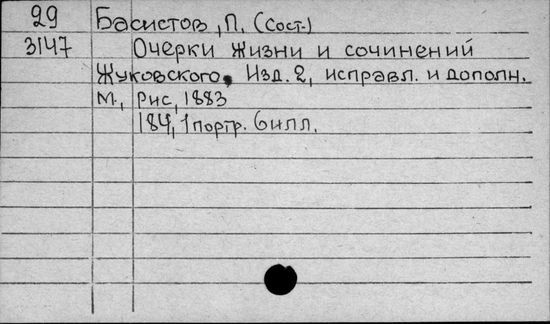 29 Басистов, П. (Сост.)
3147 Очерки жизни и сочинений
Жуковского. Изд. 2, исправл. и дополн.
М., Рис, 1883
184, 1 портр. 6 илл.